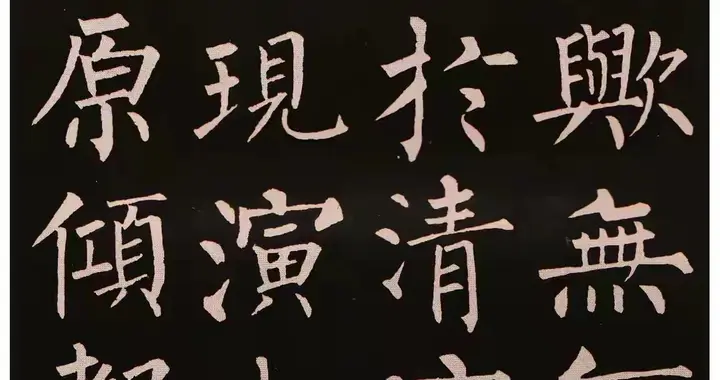 歟無
於清
現演
原傾